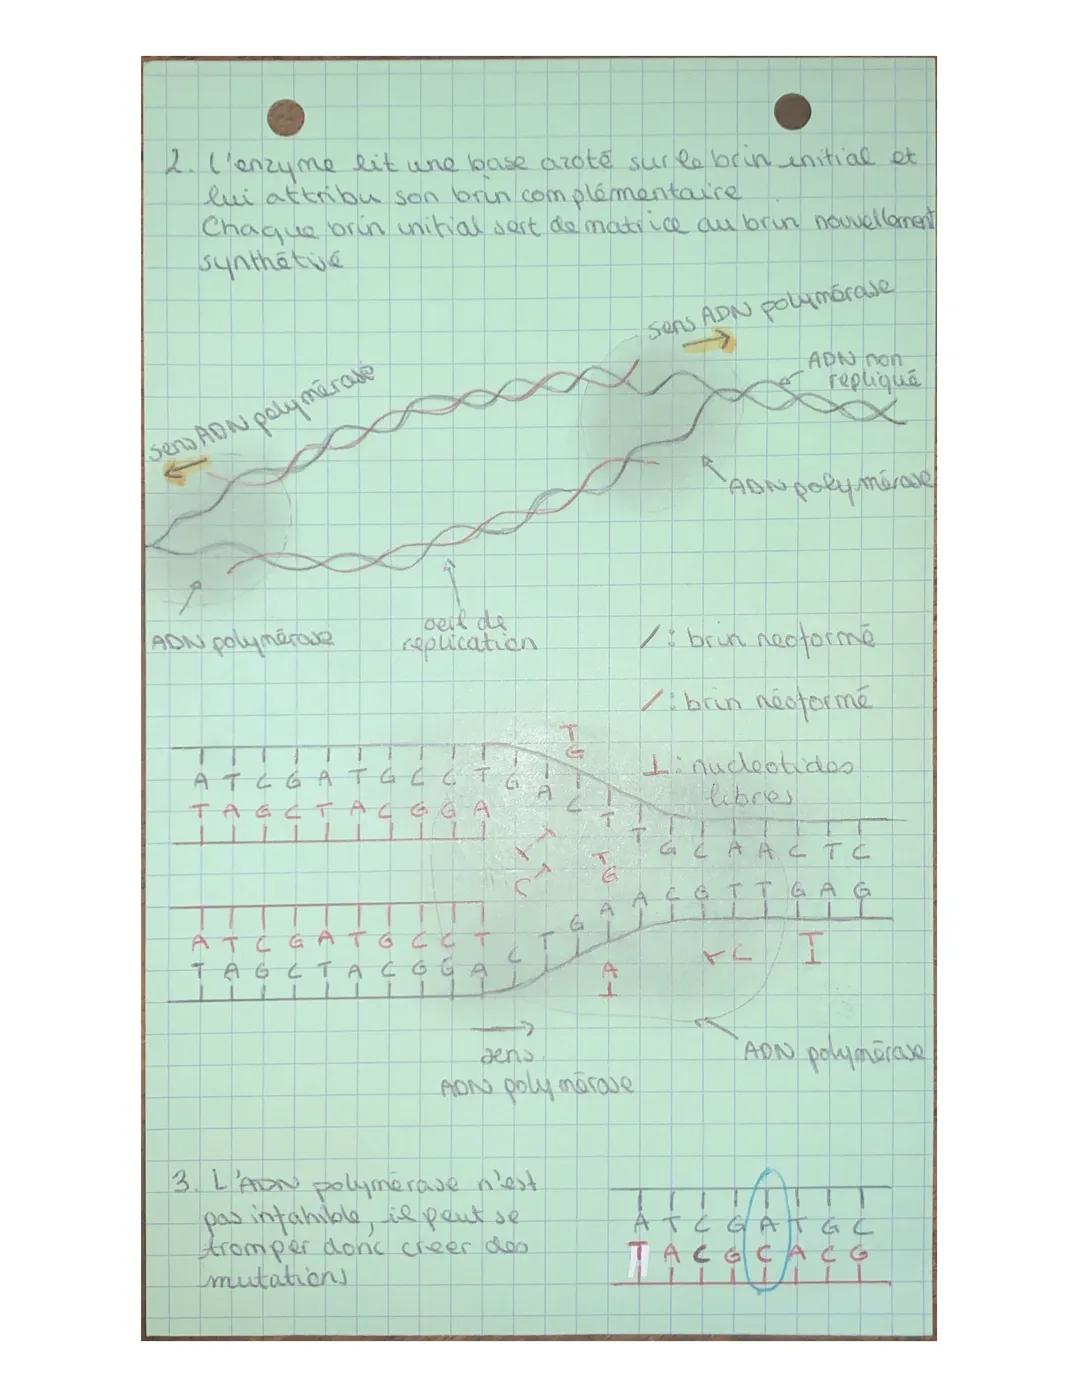 2. L'enzyme lit une base azoté sur le brin initial et
lui attribu son brin complémentaire
Chaque brin initial sert de matrice au brin nouvellement
synthétisé
sens ADN polymérase
ADN non
repliqué
sens ADN polymérase
ADN polymérase
ADN polymérase
oeil de
replication
/ : brin neoformé
/ : brin néoformé
⊥ : nucleotides
libres
T
G
A T C G A T G C C T G A C T T G C A A C T C
T A G C T A C G G A
T
G
C
A T C G A T G C C T
T A G C T A C G G A C T G A A C G T T G A G
A
C
T
sens
ADN polymérase
ADN polymérase
3. L'ADN polymérase n'est
pas infahible, il peut se
tromper donc creer des
mutations
A T C G A T G C
T A C G C A C G